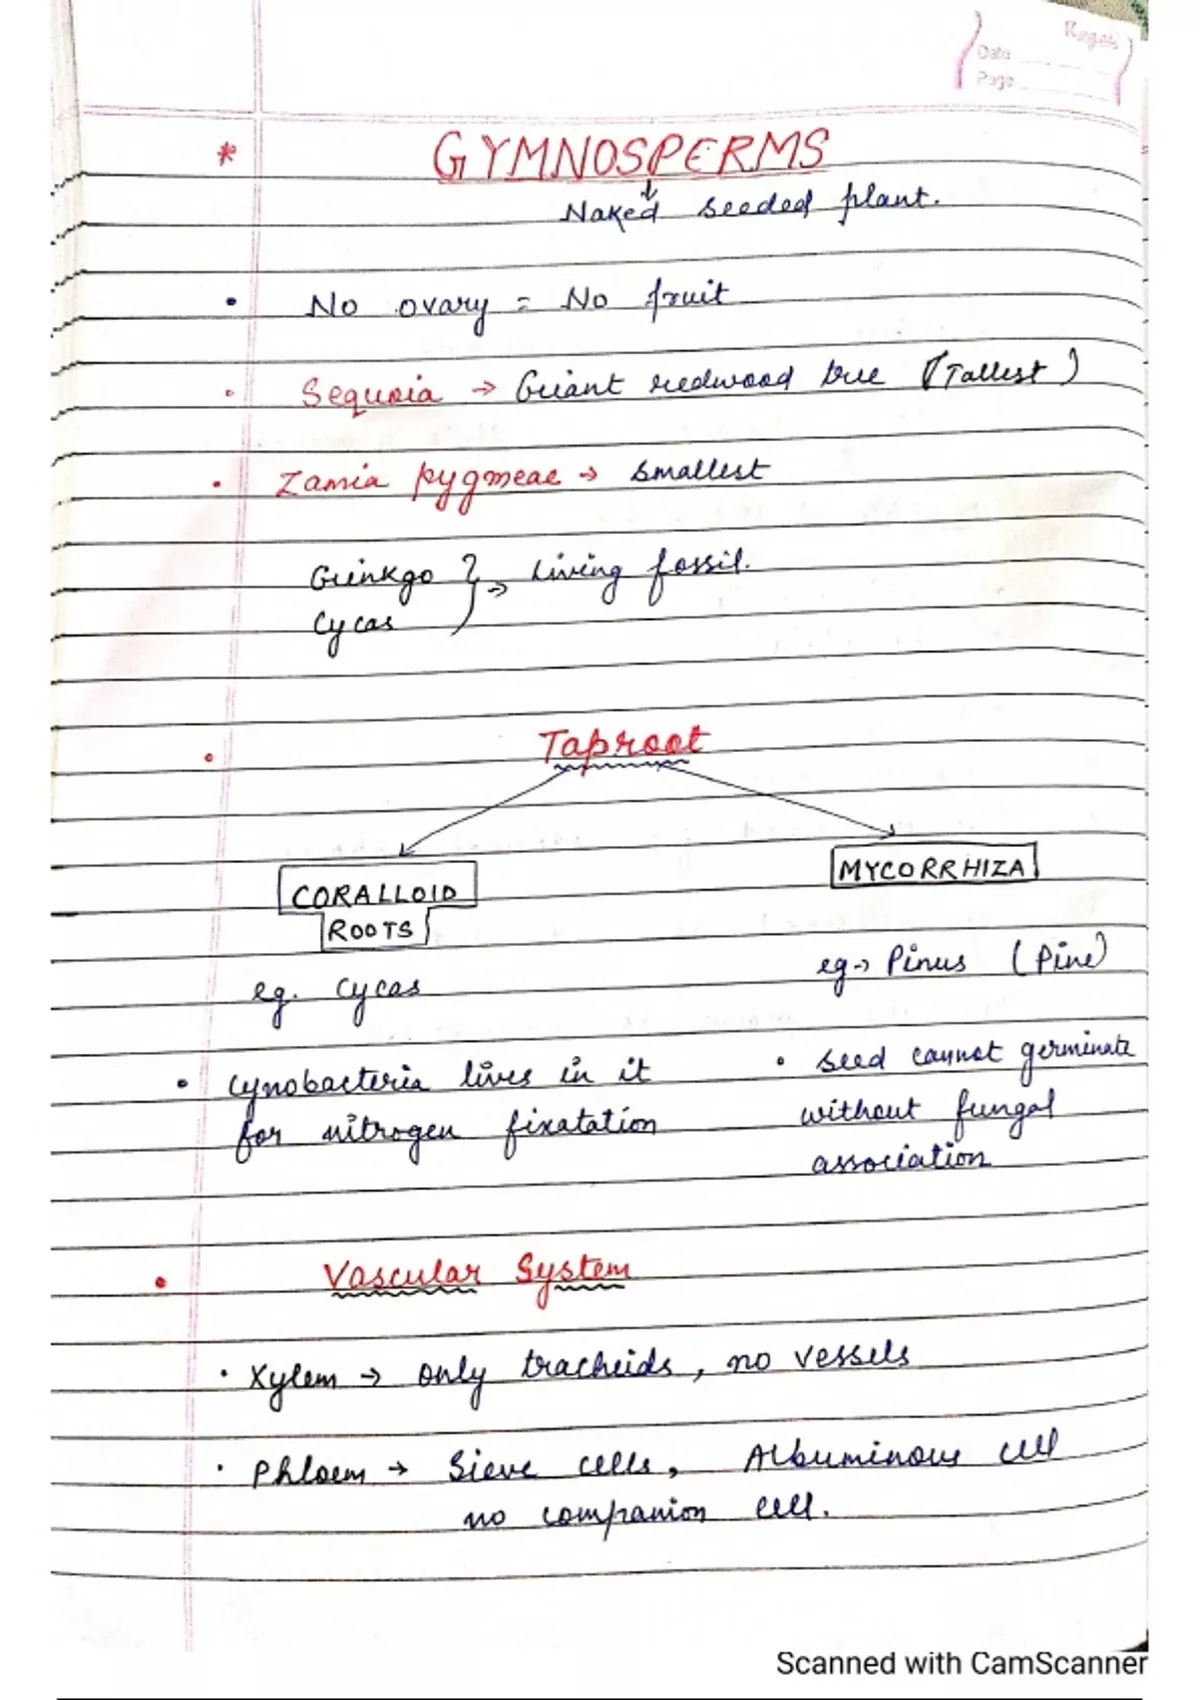 Ragas
Date
Page
* GYMNOSPERMS
↓
Naked seeded plant.
• No ovary = No fruit
• Sequoia → Giant redwood tree (Tallest)
• Zamia pygmeae → smallest
Ginkgo } → Living fossil.
Cycas
• Taproot
CORALLOID ROOTS
MYCORRHIZA
eg. Cycas
eg → Pinus (Pine)
• Cynobacteria lives in it
for nitrogen fixatation
• seed cannot germinate
without fungal
association
• Vascular System
• Xylem → only tracheids, no vessels
• Phloem → Sieve cells, Albuminous cell
no companion cell.
Scanned with CamScanner